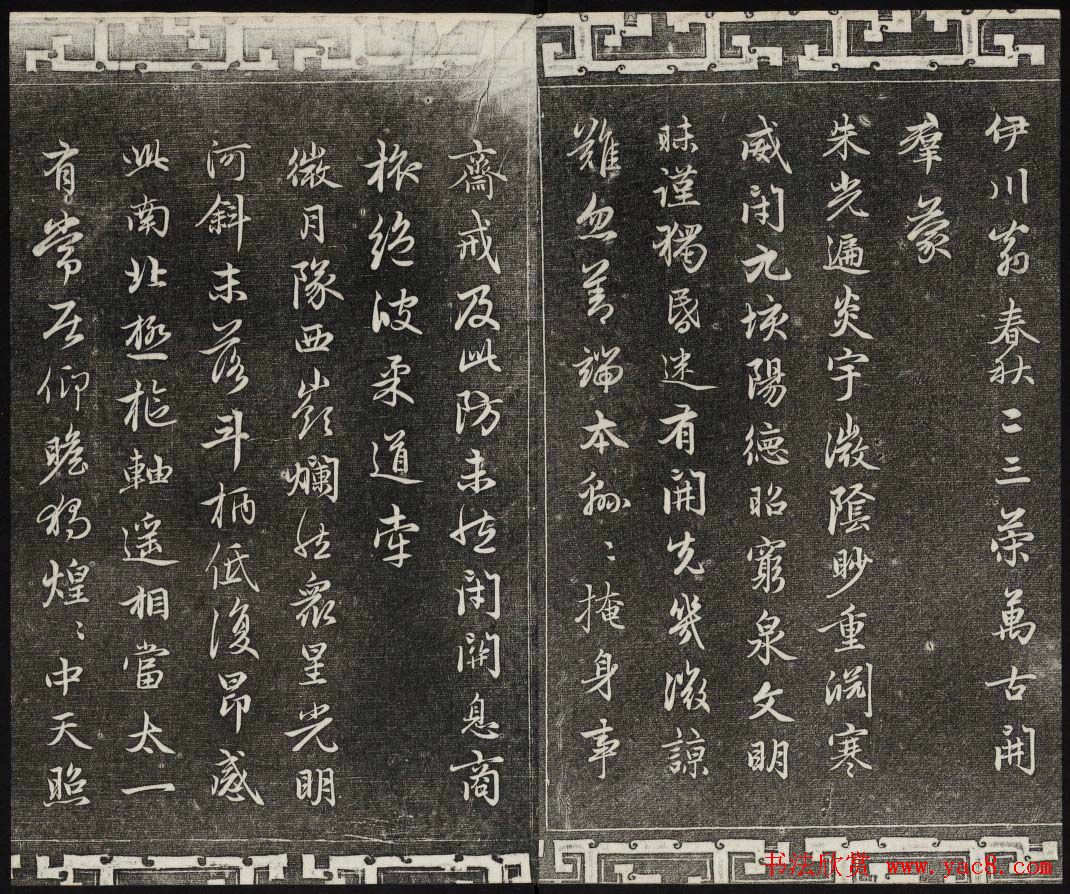 伊川翁春秋二三策萬古開
羣蒙
朱光遍炎宇微陰眇重淵寒
威閉九垓陽德昭窮泉文明
昧謹獨昏迷有開先幾微諒
難忽善端本綿〻掩身事
齋戒及此防未然閉關息商
旅絕彼柔道牽
微月隊西嶺爛然衆星光明
河斜未落斗柄低復昂感
此南北極樞軸遥相當太一
有常居仰瞻獨煌〻中天照
书法欣赏 www.yac8.com